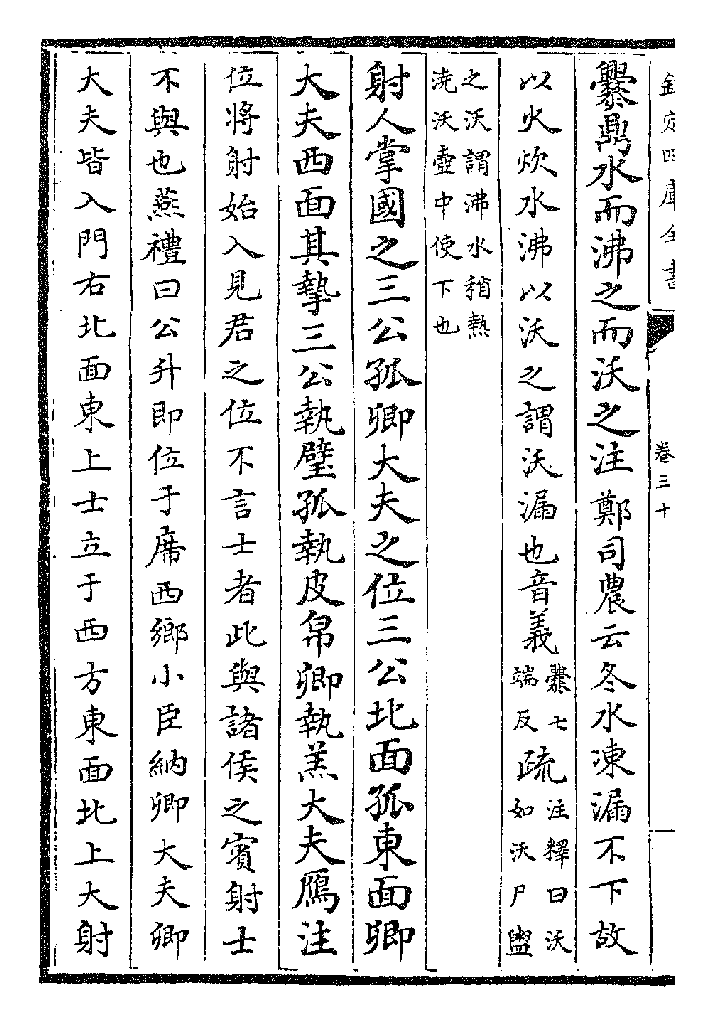 欽定四庫全書
卷三十
爨鼎水而沸之而沃之注鄭司農云冬水凍漏不下故
以火炊水沸以沃之謂沃漏也音義爨七端反疏注釋曰沃如沃尸盥
之沃謂沸水稍熱洗沃壺中使下也
射人掌國之三公孤卿大夫之位三公北面孤東面卿
大夫西面其摯三公執璧孤執皮帛卿執羔大夫鴈注
位將射始入見君之位不言士者此與諸侯之賓射士
不與也燕禮曰公升即位于席西鄉小臣納卿大夫卿
大夫皆入門右北面東上士立于西方東面北上大射